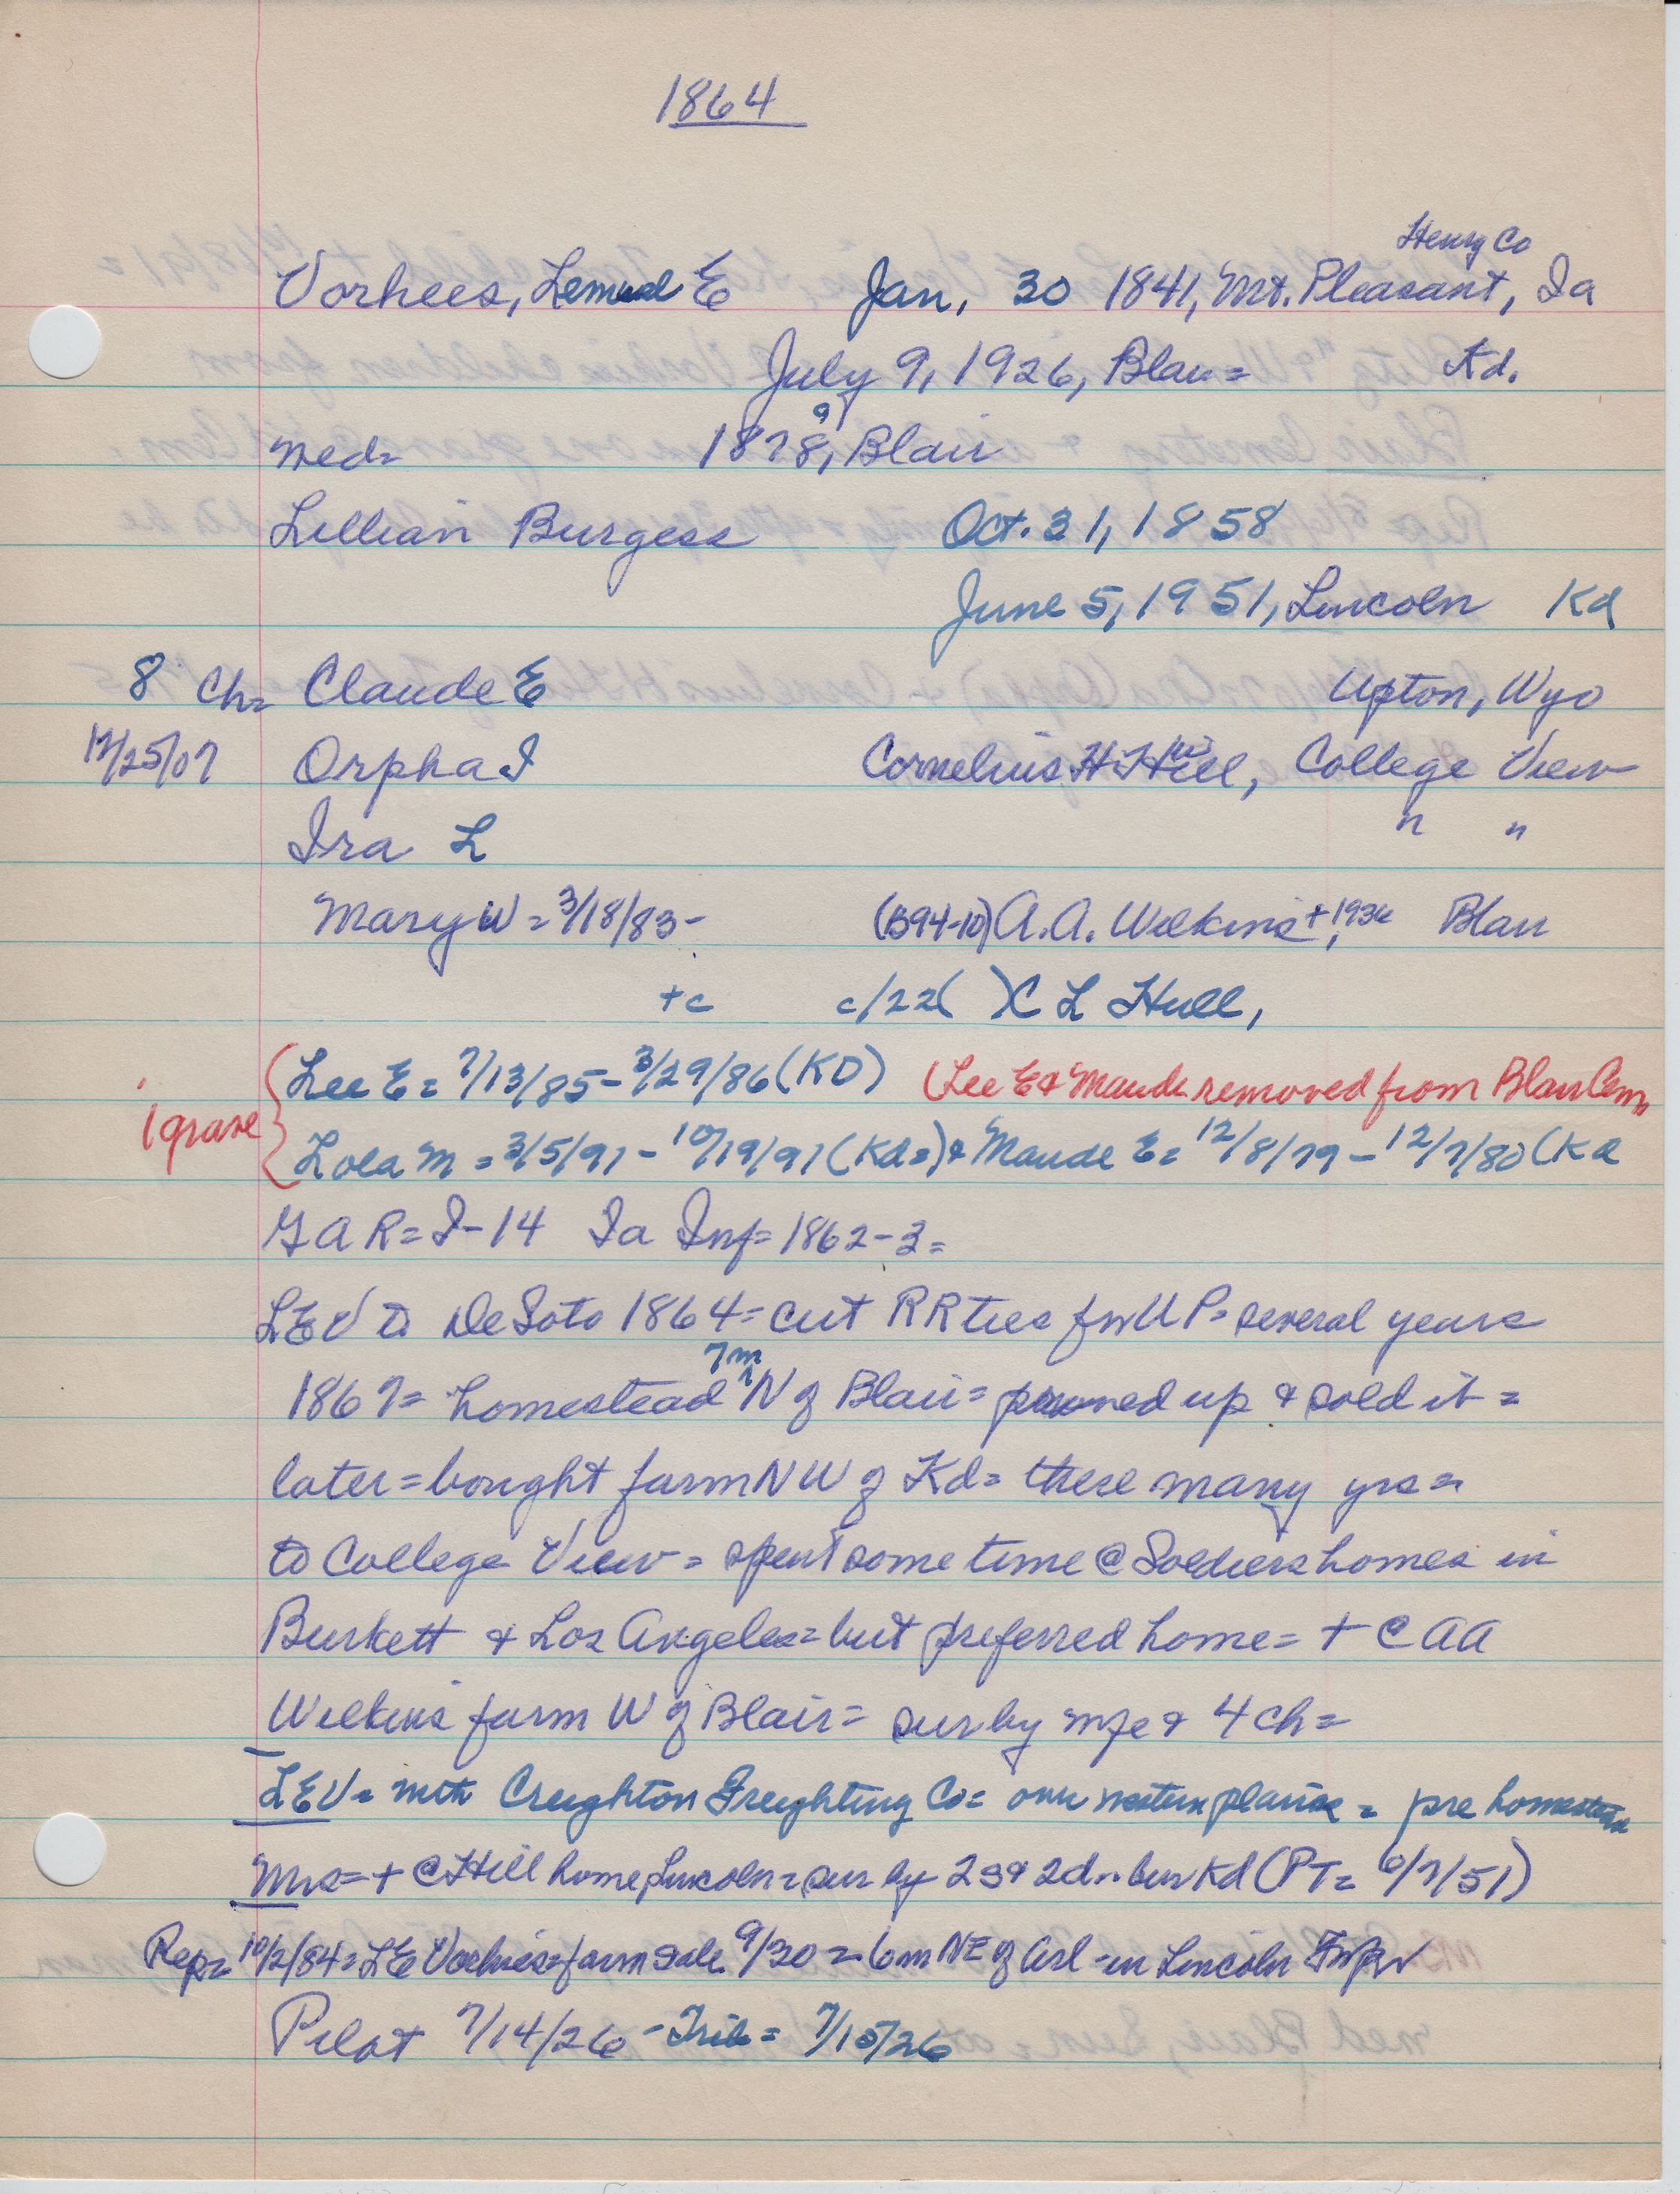 1864
Henry Co
Vorhees, Lemuel E Jan, 30 1841, Mt. Pleasant, Ia
July 9, 1926, Blair = Kd.
9
med= 1878, Blair
Lillian Burgess Oct. 31, 1858
June 5, 1951, Lincoln Kd
8 Ch= Claude E Upton, Wyo
12/25/07 Orpha I Cornelius H Hill, College View
Ira L " "
Mary W = 3/18/83- (B94-10) A.A. Wilkins +, 1936 Blair
+c c/22( ) C L Hull,
Lee E = 7/13/85 - 3/29/86 (KD) (Lee E & Maude removed from Blair Cem,
1 grave Lola M = 3/5/91 - 10/19/91 (Kd=) & Maude E = 12/8/79 - 12/7/80 (Kd
G A R = I-14 Ia Inf = 1862-3 =
LEV to DeSoto 1864 = cut RR ties for UP = several years
7m
1867 = homestead ^ N of Blair = proved up & sold it =
later = bought farm NW of Kd = these many yrs =
to College View = spent some time @ Soldiers homes in
Burkett & Los Angeles = but preferred home = + @ AA
Wilkins farm W of Blair = sur by wife & 4 ch =
LEV = with Creighton Freighting Co = over western plains = pre homestead
Mrs = + @ Hill home, Lincoln = sur by 2 s & 2 d = bur Kd (PT = 6/7/51)
Rep = 10/2/84 = LE Vorhies = farm sale 9/30 = 6m NE of Arl - in Lincoln Twp
Pilot 7/14/26 - Trib = 7/15/26